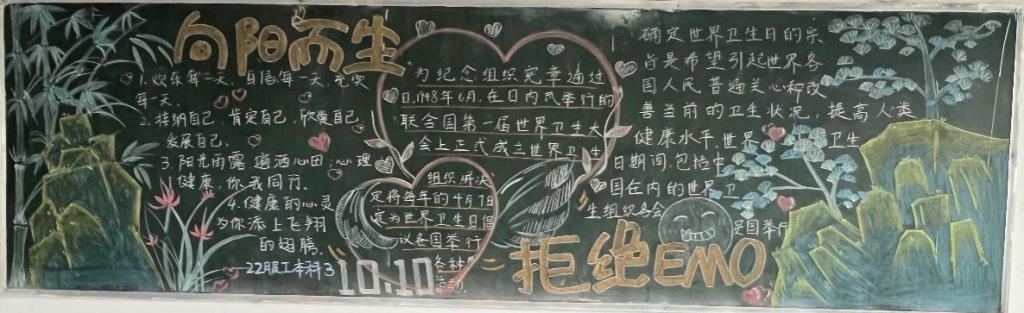 向阳而生
1.欢乐每一天,自信每一天,充实
每一天.
2.接纳自己,肯定自己,欣赏自己
发展自己.
3.阳光雨露 洒心田;心理
健康,你我同行.
4.健康的心灵
为你添上飞翔
的翅膀.
22服工本科3
为纪念组织宪章通过
日.1948年6月.在日内瓦举行的
联合国第一届世界卫生大
会上正式成立世界卫生
组织,并决
定将每年的4月7日
定为世界卫生日倡
议各国举行
各种
10.10
确定世界卫生日的宗
旨是希望引起世界各
国人民普遍关心和改
善当前的卫生状况,提高人类
健康水平.世界 卫生
日期间,包括中
国在内的世界卫
生组织各会
员国举行
拒绝EMO